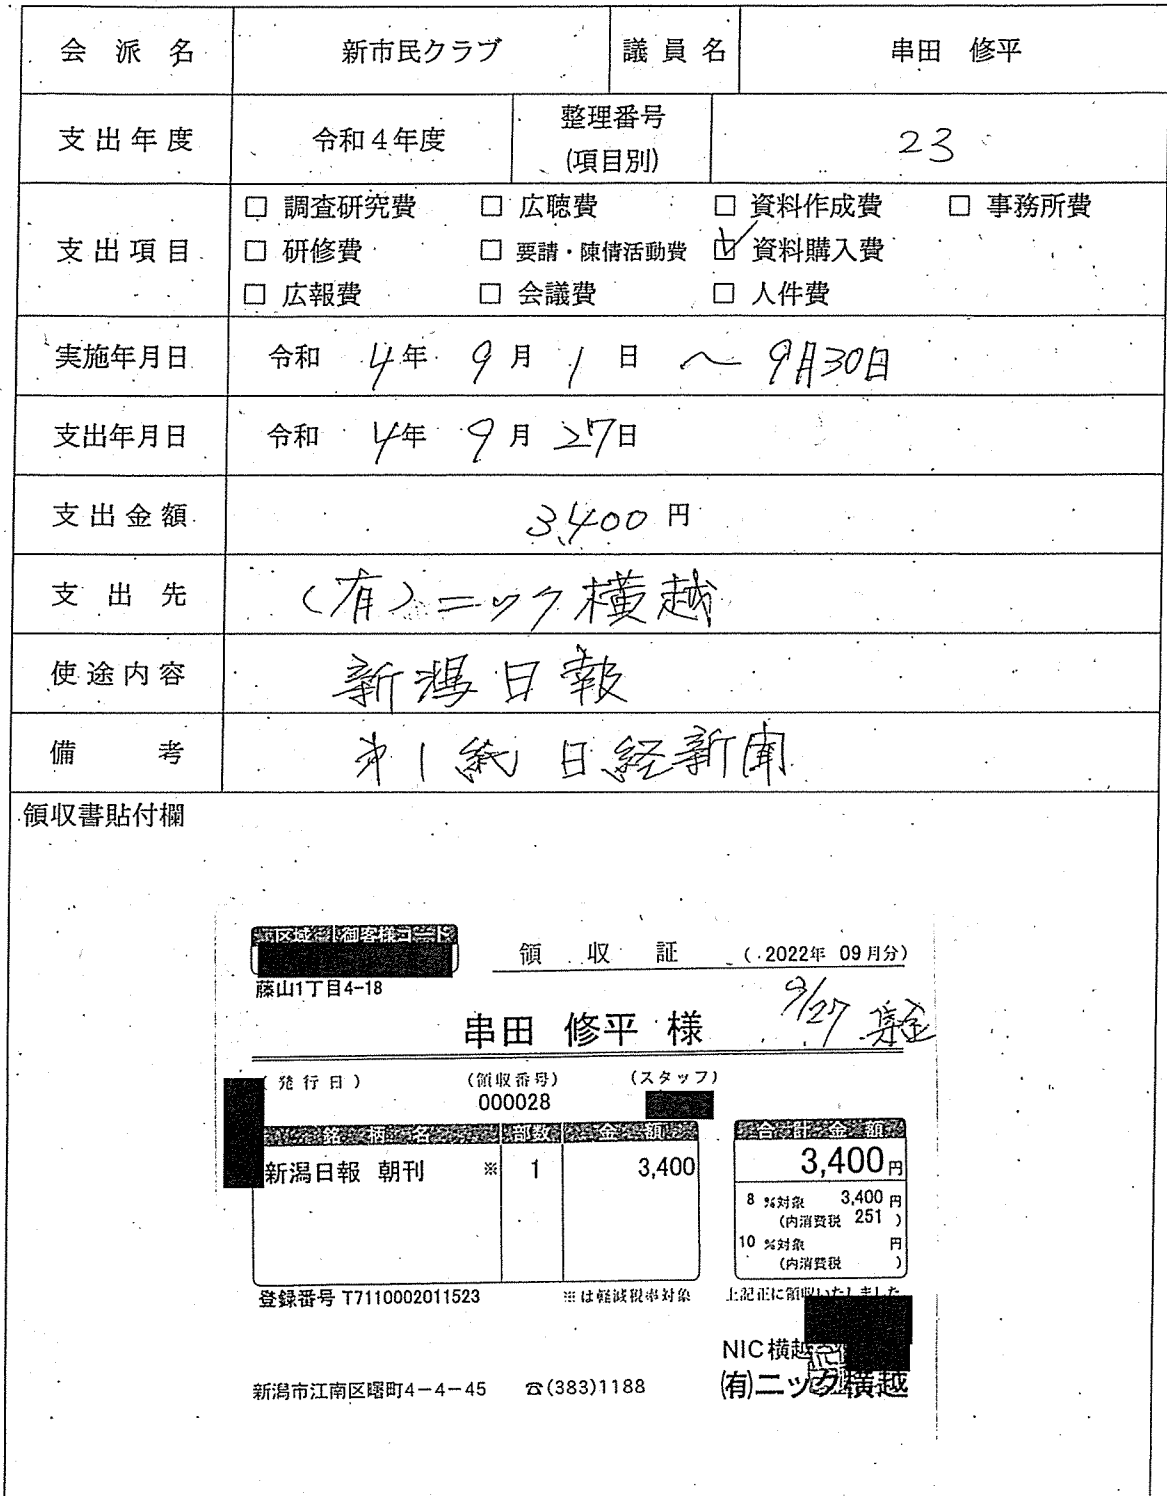 会派名 新市民クラブ 議員名 串田 修平
支出年度 令和4年度 整理番号 (項目別) 23
支出項目
□ 調査研究費 □ 広聴費 □ 資料作成費 □ 事務所費
□ 研修費 □ 要請・陳情活動費 ☑ 資料購入費
□ 広報費 □ 会議費 □ 人件費
実施年月日 令和 4年 9月 1日 ～ 9月30日
支出年月日 令和 4年 9月 27日
支出金額 3,400円
支出先 (有)ニック横越
使途内容 新潟日報
備考 オ1紙 日経新聞
領収書貼付欄
区域 御客様コード
領収証 (2022年 09月分)
藤山1丁目4-18
9/27 集金
串田 修平 様
(発行日) (領収番号) (スタッフ)
000028
銘柄名 部数 金額 合計金額
新潟日報 朝刊 ※ 1 3,400 3,400円
8 %対象 3,400円
(内消費税 251 )
10 %対象 円
(内消費税 )
登録番号 T7110002011523 ※は軽減税率対象 上記正に領収いたしました
NIC横越
新潟市江南区曙町4-4-45 ☎(383)1188 (有)ニック横越